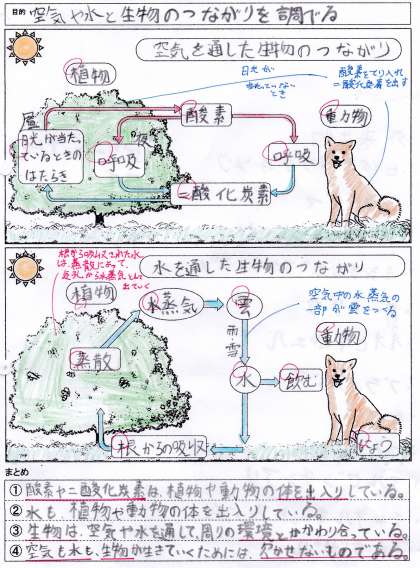 目的 空気や水と生物のつながりを調べる
空気を通した生物のつながり
植物
日光が
当たっていない
とき
酸素をとり入れ
二酸化炭素を出す
酸素
動物
昼
日光が当たっ
ているときの
はたらき
夜
呼吸
呼吸
二酸化炭素
水を通した生物のつながり
根から吸収された水
は、蒸散によって
植物
水蒸気
雲
空気中の水蒸気の
一部が雲をつくる
動物
雨
雪
蒸散
水
飲む
根からの吸収
にょう
まとめ
① 酸素や二酸化炭素は、植物や動物の体を出入りしている。
② 水も、植物や動物の体を出入りしている。
③ 生物は、空気や水を通して、周りの環境とかかわり合っている。
④ 空気も水も、生物が生きていくためには、欠かせないものである。